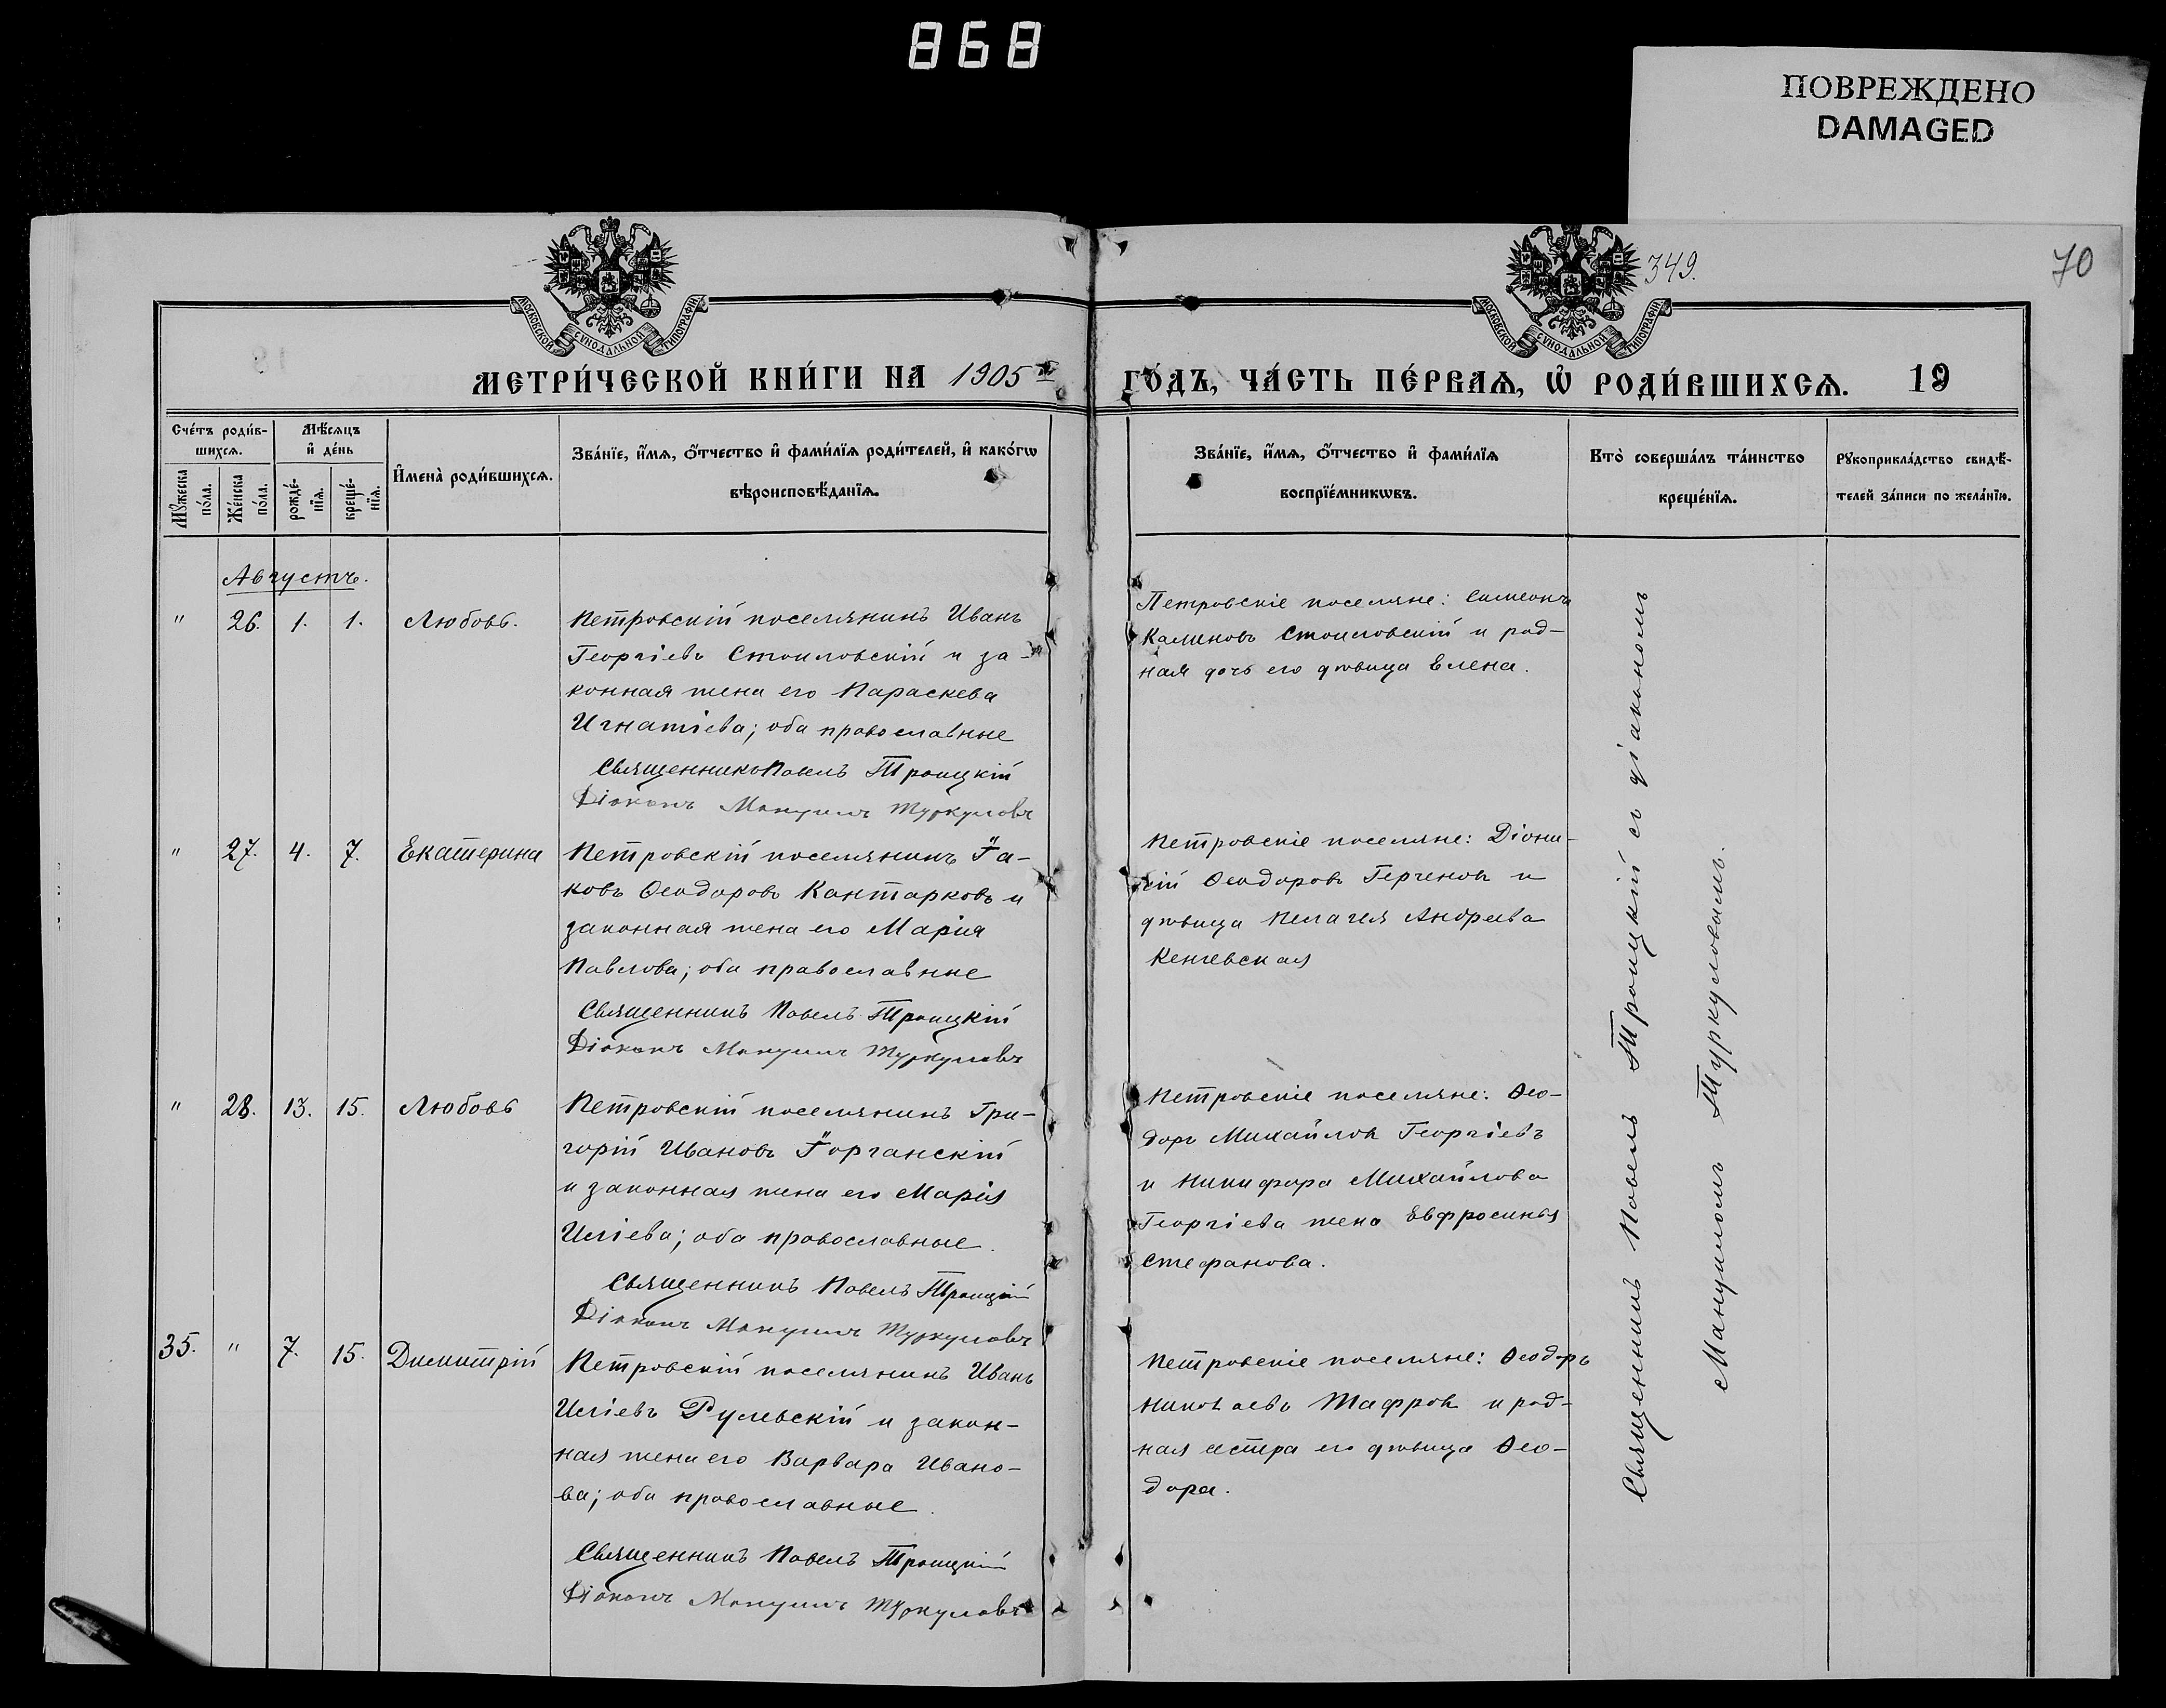 868
ПОВРЕЖДЕНО
DAMAGED
349.
70
МОСКОВСКОЙ СѴНОДАЛЬНОЙ ТИПОГРАФІИ
МОСКОВСКОЙ СѴНОДАЛЬНОЙ ТИПОГРАФІИ
МЕТРИ́ЧЕСКОЙ КНИ́ГИ НА 1905 й
ГО́ДЪ, ЧА́СТЬ ПЕ́РВАѦ, Ѡ҆ РОДИ́ВШИХСѦ. 19
Сче́тъ роди́в-
шихсѧ.
Мꙋ́жеска
по́ла.
Же́нска
по́ла.
Мѣ́сѧцъ
и҆ де́нь
рожде́-
нїѧ.
креще́-
нїѧ.
И҆мена̀ роди́вшихсѧ.
Зва́нїе, и҆́мѧ, ѻ҆́тчество и҆ фами́лїѧ роди́телей, и҆ како́гѡ
вѣроисповѣ́данїѧ.
Зва́нїе, и҆́мѧ, ѻ҆́тчество и҆ фами́лїѧ
воспрїе́мникѡвъ.
Кто̀ соверша́лъ та́инство
креще́нїѧ.
Рꙋкоприкла́дство свидѣ́-
телей за́писи по жела́нїю.
Августъ.
" 26. 1. 1. Любовь.
Петровскій поселянинъ Иванъ
Георгіевъ Стоиловскій и за-
конная жена его Параскева
Игнатіева; оба православные
Священникъ Павелъ Троицкій
Діаконъ Мануилъ Туркуловъ
Петровскіе поселяне: Симеонъ
Калиновъ Стоиловскій и род-
ная дочь его дѣвица Елена.
" 27. 4. 7. Екатерина
Петровскій поселянинъ Їа-
ковъ Ѳеодоровъ Кантарковъ и
законная жена его Марія
Павлова; оба православные
Священникъ Павелъ Троицкій
Діаконъ Мануилъ Туркуловъ
Петровскіе поселяне: Діони-
сій Ѳеодоровъ и
дѣвица Пелагея Андреева
" 28. 13. 15. Любовь
Петровскій поселянинъ Гри-
горій Ивановъ Їорганскій
и законная жена его Марія
Иліева; оба православные.
Священникъ Павелъ Троицкій
Діаконъ Мануилъ Туркуловъ
Петровскіе поселяне: Ѳео-
доръ Михайловъ Георгіевъ
и Никифора Михайлова
Георгіева жена Евфросинья
Стефанова.
35. " 7. 15. Димитрій
Петровскій поселянинъ Иванъ
Иліевъ Рулевскій и закон-
ная жена его Варвара Ивано-
ва; оба православные.
Священникъ Павелъ Троицкій
Діаконъ Мануилъ Туркуловъ
Петровскіе поселяне: Ѳеодоръ
Николаевъ Тафровъ и род-
ная сестра его дѣвица Ѳео-
дора.
Священникъ Павелъ Троицкій съ діакономъ
Мануиломъ Туркуловымъ.